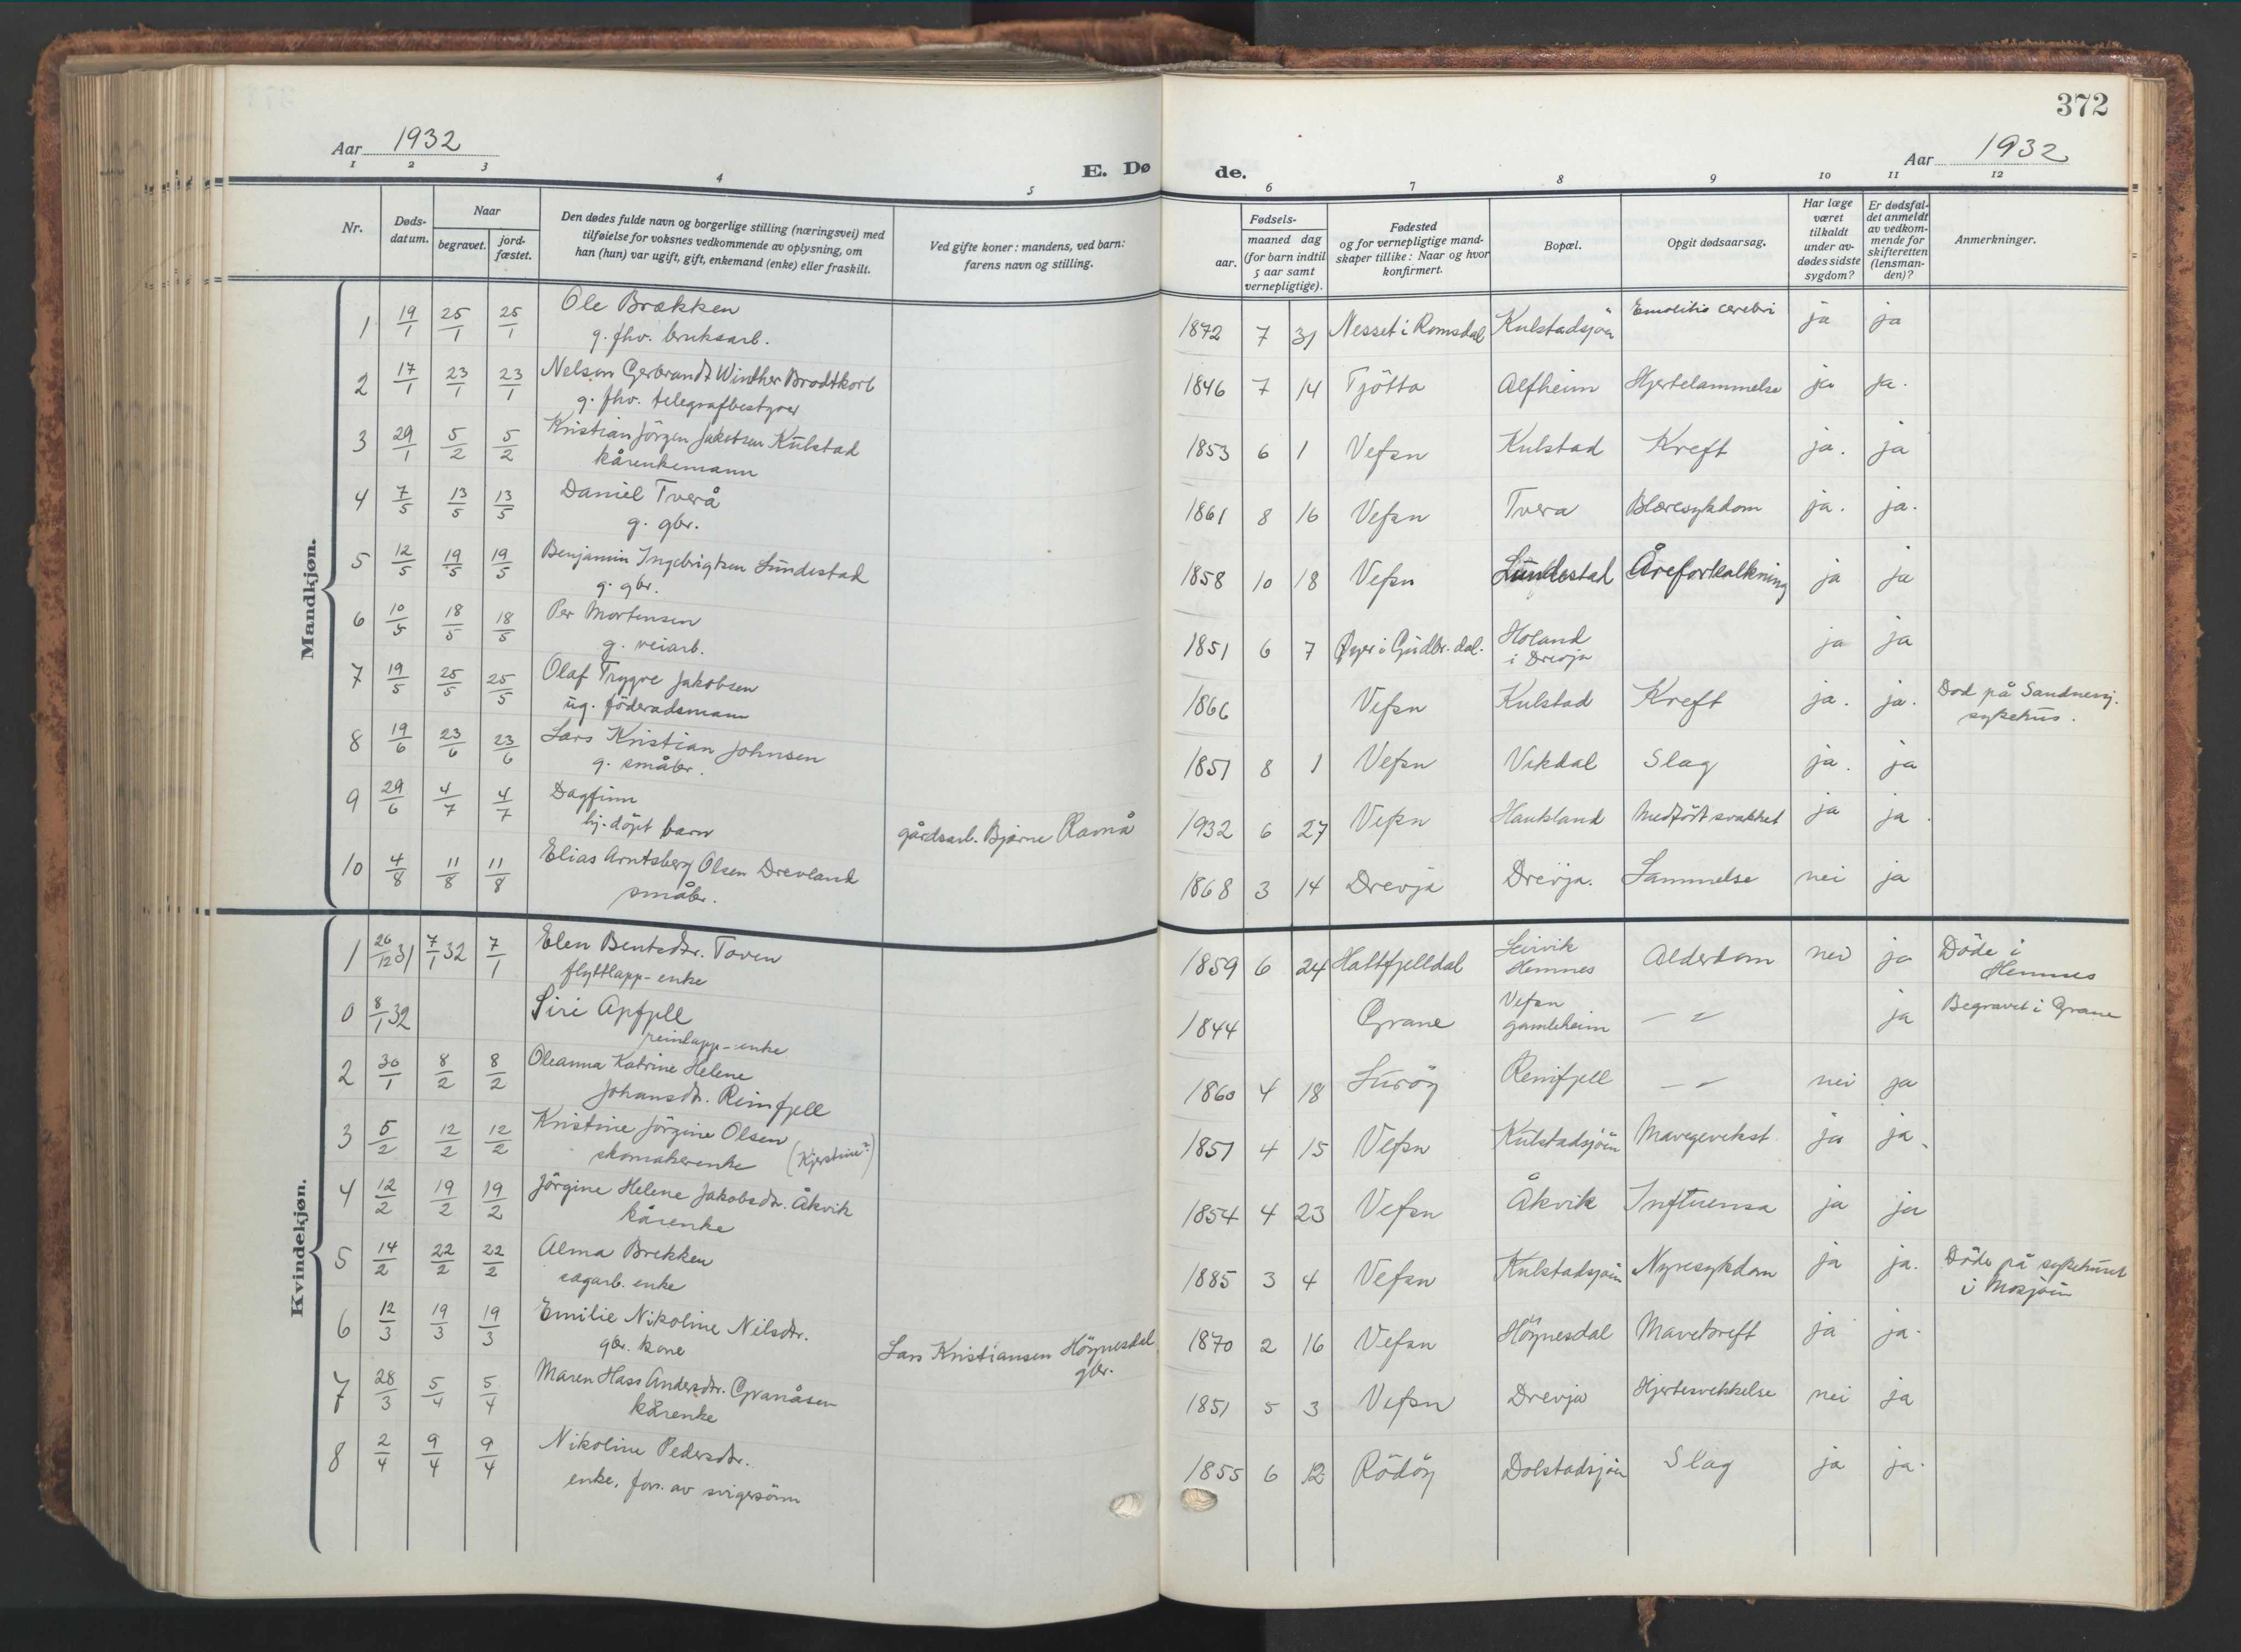 372
Aar 1932
E. Dø de.
Aar 1932
1 2 3 4 5 6 7 8 9 10 11 12
Nr.
Døds-datum.
Naar
begravet. jord-fæstet.
Den dødes fulde navn og borgerlige stilling (næringsvei) med
tilføielse for voksnes vedkommende av oplysning, om
han (hun) var ugift, gift, enkemand (enke) eller fraskilt.
Ved gifte koner: mandens, ved barn:
farens navn og stilling.
Fødsels-
aar. maaned dag
(for barn indtil
5 aar samt
vernepligtige).
Fødested
og for vernepligtige mand-
skaper tillike: Naar og hvor
konfirmert.
Bopæl.
Opgit dødsaarsag.
Har læge
været
tilkaldt
under av-
dødes sidste
sygdom?
Er dødsfal-
det anmeldt
av vedkom-
mende for
skifteretten
(lensman-
den)?
Anmerkninger.
Mandkjøn.
1 19/1 25/1 25/1 Ole Brækken 1872 7 31 Nesset i Romsdal Kulstadsjøen cerebri ja ja
g. fhv. bruksarb.
2 17/1 23/1 23/1 Nelson Gerbrandt Winther Brodtkorb 1846 7 14 Tjötta Alfheim Hjertelammelse ja ja.
g. fhv. telegrafbestyrer
3 29/1 5/2 5/2 Kristian Jörgen Jakobsen Kulstad 1853 6 1 Vefsn Kulstad Kreft ja. ja
kårenkemann
4 7/5 13/5 13/5 Daniel Tverå 1861 8 16 Vefsn Tvera Blæresykdom ja. ja.
g. gbr.
5 12/5 19/5 19/5 Benjamin Ingebrigtsen Lundestad 1858 10 18 Vefsn Lundestad Åreforkalkning ja ja
g. gbr.
6 10/5 18/5 18/5 Per Mortensen 1851 6 7 Øyer i Gudbr. dal. Holand ja ja
g. veiarb. i Drevja
7 19/5 25/5 25/5 Olaf Trygve Jakobsen 1866 Vefsn Kulstad Kreft ja. ja. Död på Sandnessj.
ug. föderadsmann sykehus.
8 19/6 23/6 23/6 Lars Kristian Johnsen 1851 8 1 Vefsn Vikdal Slag ja. ja
g. småbr.
9 29/6 4/7 4/7 Dagfinn gårdsarb. Bjarne Ramå 1932 6 27 Vefsn Haukland Medfört svakhet ja ja.
hj. döpt barn
10 4/8 11/8 11/8 Elias Arntsberg Olsen Drevland 1868 3 14 Drevja Drevja. Lammelse nei ja
småbr.
Kvindekjøn.
1 26/12 31 7/1 32 7/1 Elen Bentsdtr. Toven 1859 6 24 Hattfjelldal Leirvik Alderdom nei ja Döde i
flyttlapp-enke Hemnes Hemnes
0 8/1 32 Siri Apfjell 1844 Grane Vefsn – " – ja Begravet i Grane
reinlapp-enke gamleheim
2 30/1 8/2 8/2 Oleanna Katrine Helene 1860 4 18 Luröy Reinfjell – " – nei ja
Johansdtr. Reinfjell
3 5/2 12/2 12/2 Kristine Jörgine Olsen 1851 4 15 Vefsn Kulstadsjöen Mavegevekst ja ja.
skomakerenke (Kjerstine?)
4 12/2 19/2 19/2 Jörgine Helene Jakobsdtr. Åkvik 1854 4 23 Vefsn Åkvik Influensa ja ja
kårenke
5 14/2 22/2 22/2 Alma Brekken 1885 3 4 Vefsn Kulstadsjöen Nyresykdom ja ja. Döde på sykehuset
sagarb. enke i Mosjöen
6 12/3 19/3 19/3 Emilie Nikoline Nilsdtr. Lars Kristiansen Höynesdal 1870 2 16 Vefsn Höynesdal Mavekreft ja ja.
gbr. kone gbr.
7 28/3 5/4 5/4 Maren Hass Andersdtr. Granåsen 1851 5 3 Vefsn Drevja Hjertesvekkelse nei ja
kårenke
8 2/4 9/4 9/4 Nikoline Pedersdtr. 1855 6 12 Rödöy Dolstadsjöen Slag ja ja.
enke, fors. av svigersönn